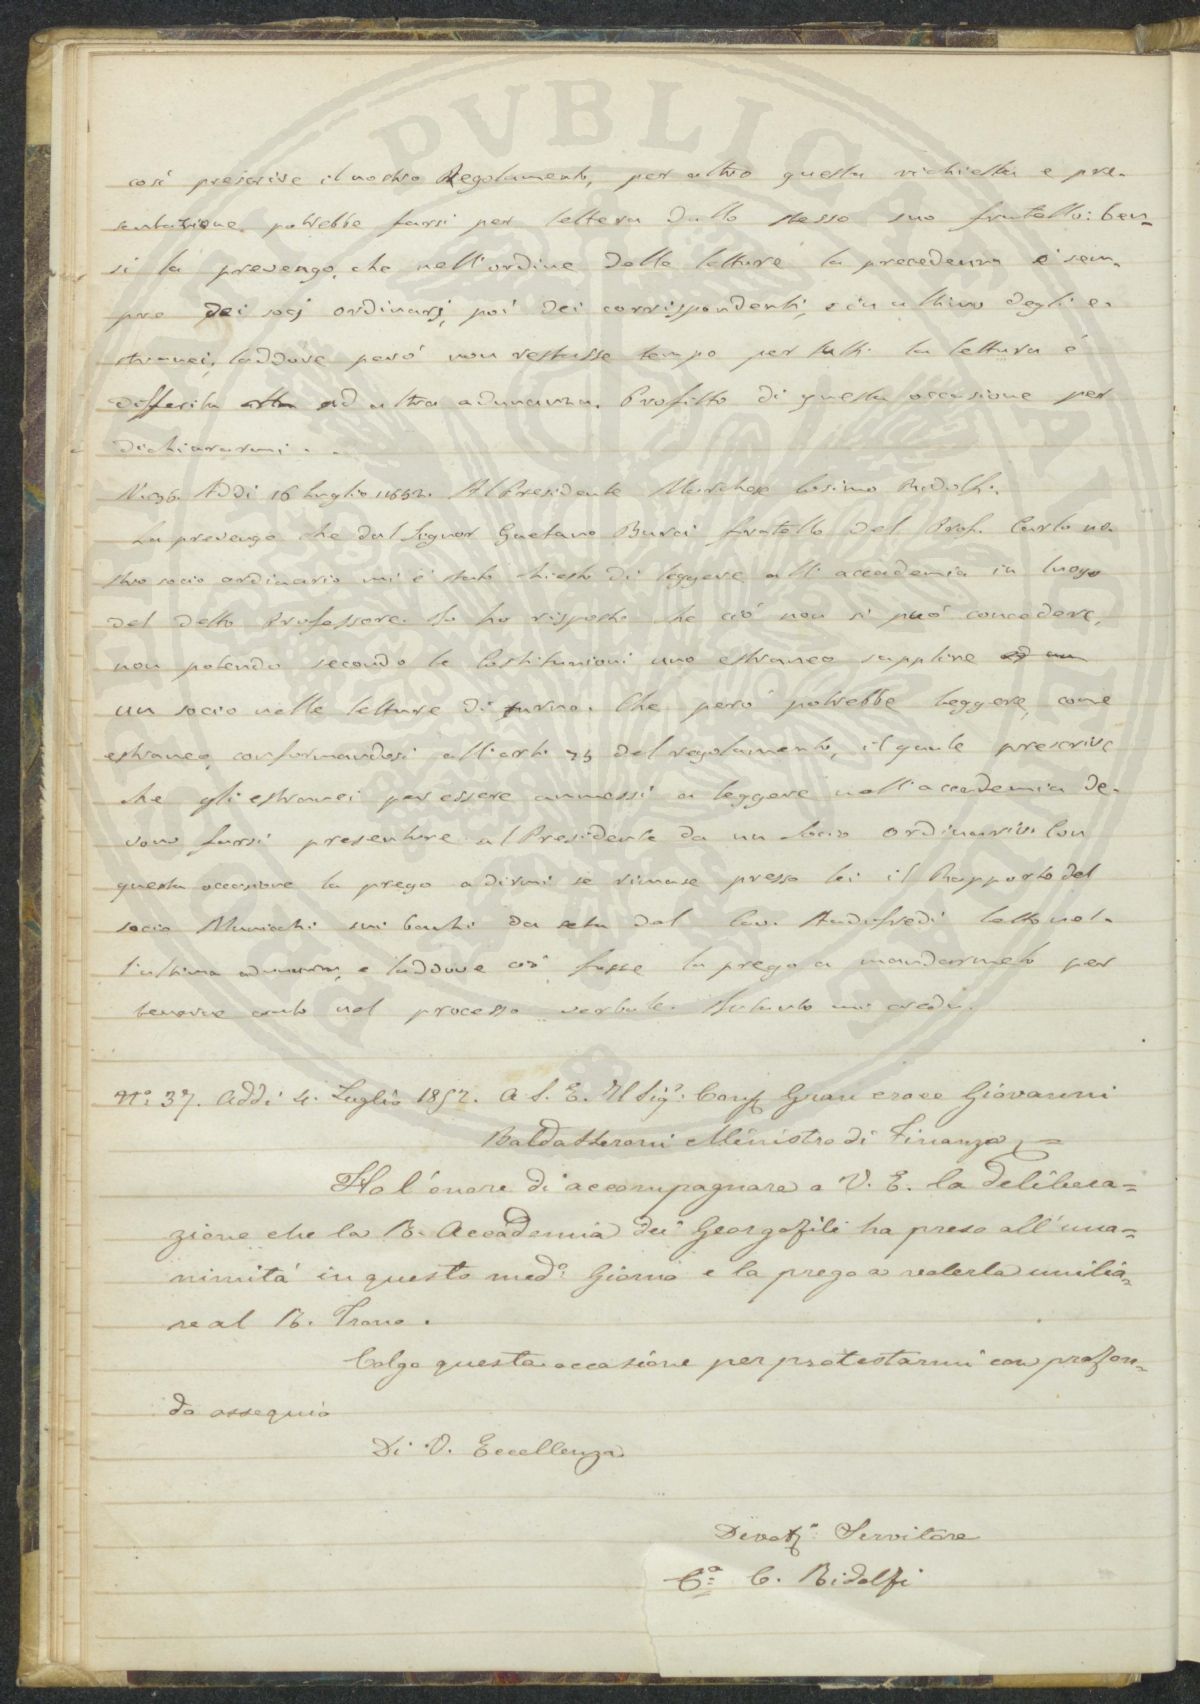 PVBLICAE
così prescrive il nostro Regolamento, per altro questa richiesta e pre-
sentazione potrebbe farsi per lettera dallo stesso suo fratello: ben-
si la prevengo, che nell'ordine delle letture la precedenza è sem-
pre dei socj ordinarj, poi dei corrispondenti, e in ultimo degli e-
stranei, laddove però non restasse tempo per tutti la lettura è
differita ad altra adunanza. Profitto di questa occasione per
dichiararmi . .
N. 36. Addi 16 luglio 1852. Al Presidente Marchese Cosimo Ridolfi.
La prevengo che dal Signor Gaetano Burci fratello del Prof. Carlo no-
stro socio ordinario mi è stato chiesto di leggere all'accademia in luogo
del detto Professore. Io ho risposto che ciò non si può concedere,
non potendo secondo le Costituzioni uno estraneo supplire ad un
un socio nelle letture di turno. Che però potrebbe leggere, come
estraneo, conformandosi all'arti 75 del regolamento, il quale prescrive
che gli estranei per essere ammessi a leggere nell'accademia de-
vono farsi presentare al Presidente da un Socio ordinario. Con
questa occasione la prego a dirmi se rimase presso lei il Rapporto del
socio sui bachi da seta del Cav. letto nel-
l'ultima adunanza, e laddove ciò fosse la prego a mandarmelo per
tenerne conto nel processo verbale. Intanto mi creda.
N.º 37. Addi 4. Luglio 1852. A S. E. Il Sigr. Gran croce Giovanni
Baldasseroni Ministro di Finanza
Ho l'onore di accompagnare a V. E. la delibera=
zione che la R. Accademia dei Georgofili ha preso all'una=
nimità in questo medº Giorno e la prego a volerla umilia=
re al R. Trono.
Colgo questa occasione per protestarmi con profon=
do ossequio
Di V. Eccellenza
Servitore
C. Ridolfi